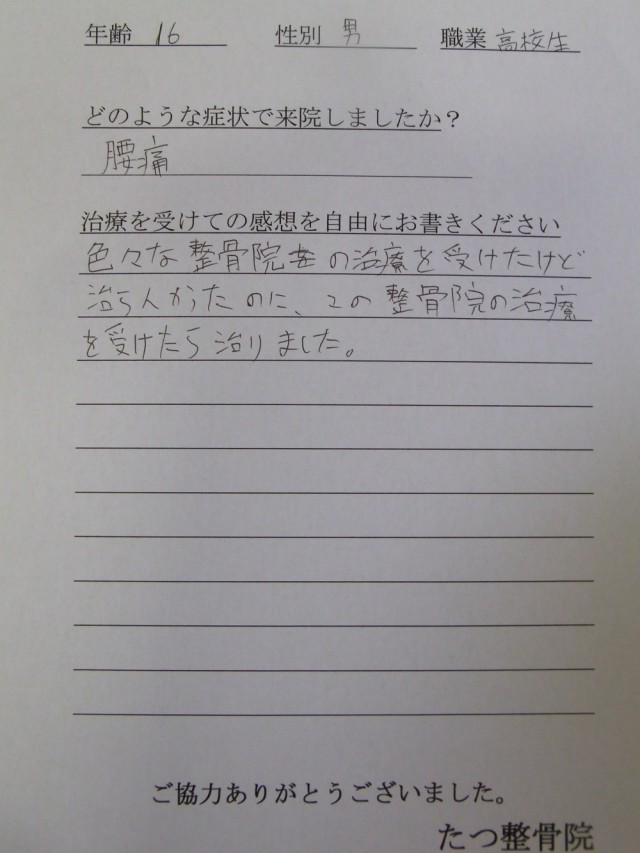 年齢 16 性別 男 職業 高校生
どのような症状で来院しましたか？
腰痛
治療を受けての感想を自由にお書きください
色々な整骨院の治療を受けたけど
治らんかたのに、この整骨院の治療
を受けたら治りました。
ご協力ありがとうございました。
たつ整骨院